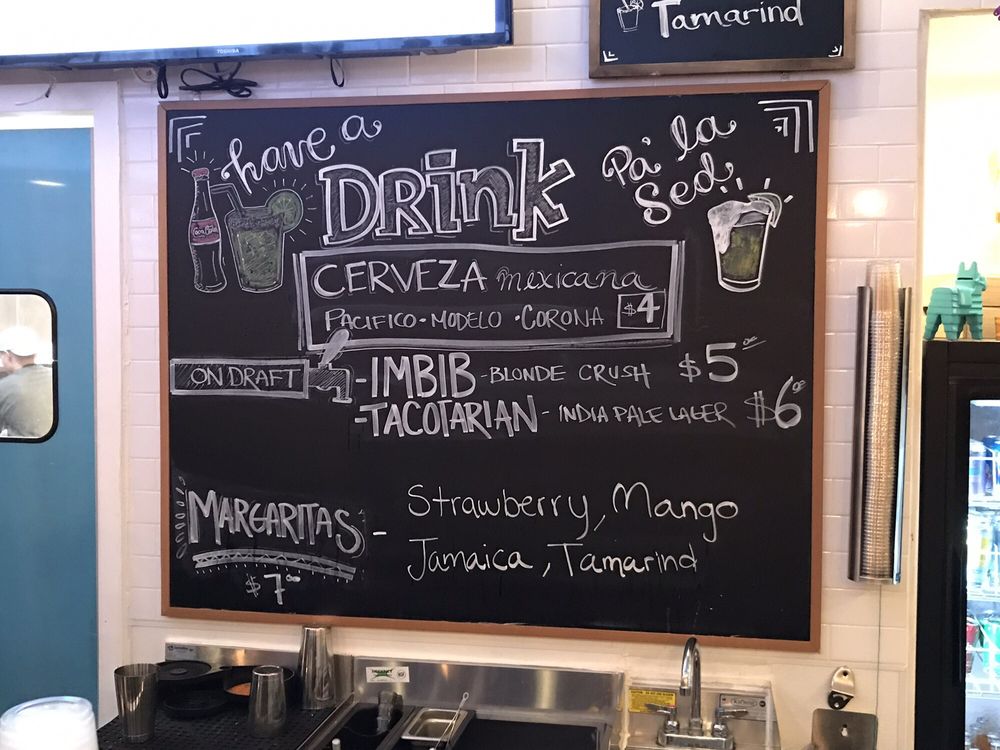 TOSHIBA
Tamarind
have a
DRink
Pa' la
Sed!
Coca-Cola
CERVEZA mexicana
PACIFICO • MODELO • CORONA $4
ON DRAFT
-IMBIB - BLONDE CRUSH $5.00
-TACOTARIAN - INDIA PALE LAGER $6.00
MARGARITAS - Strawberry, Mango
Jamaica, Tamarind
$7.00